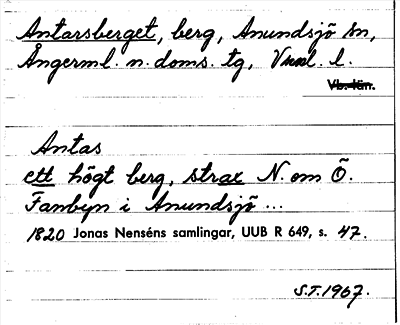 Antarsberget, berg, Anundsjö sn,
Ångerml. n. doms. tg, Vnnl. l.
Vb. län.
Antas
ett högt berg, strax N. om Ö.
Fanbyn i Anundsjö ...
1820 Jonas Nenséns samlingar, UUB R 649, s. 47.
S.T. 1967.